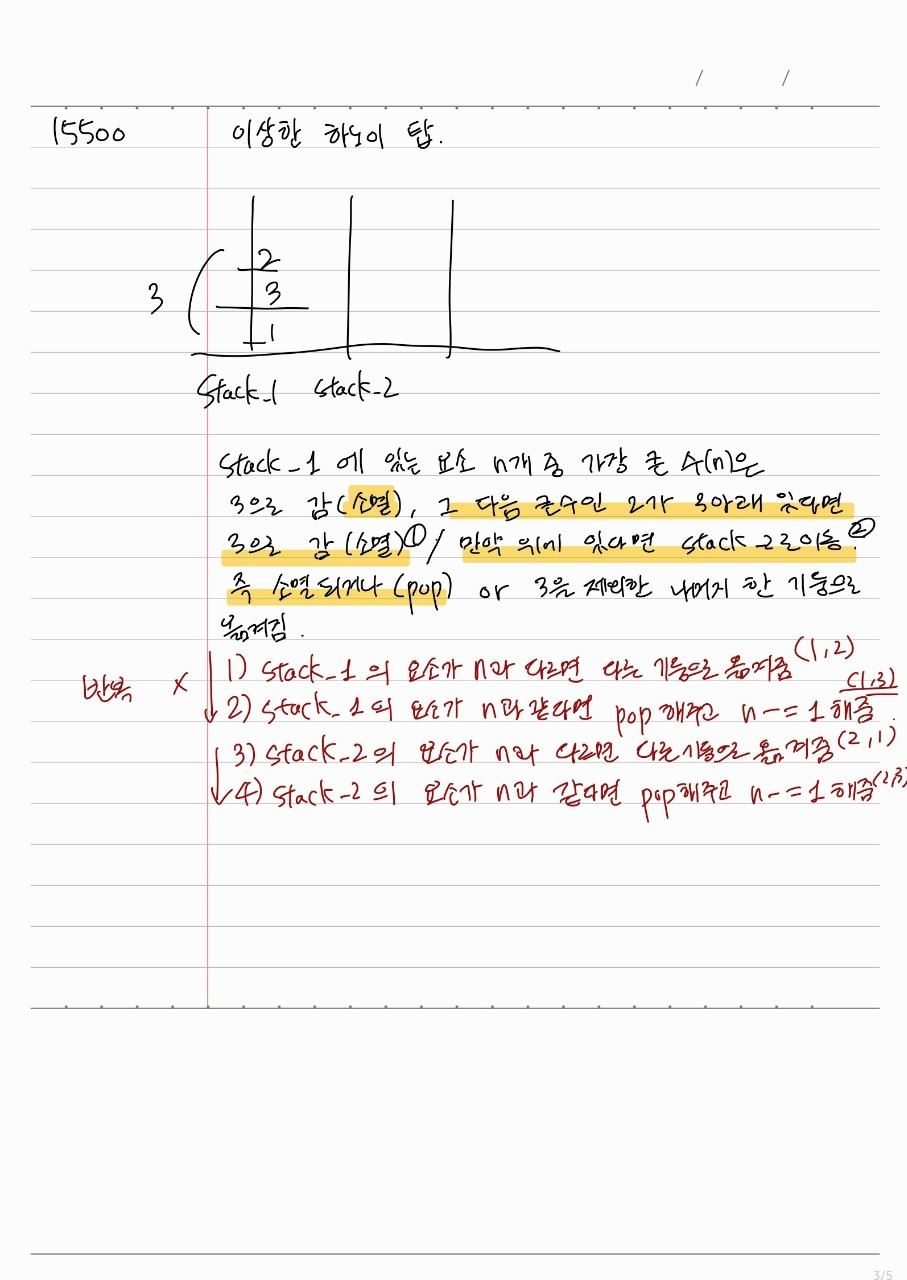 / /
15500 이상한 하노이 탑.
2
3
3
1
stack_1 stack_2
stack_1 에 있는 요소 n개 중 가장 큰 수(n)은
3으로 감(소멸), 그 다음 큰수인 2가 3아래 있다면
3으로 감 (소멸)① / 만약 위에 있다면 stack_2로이동.②
즉 소멸되거나 (pop) or 3을 제외한 나머지 한 기둥으로
옮겨짐.
1) stack_1 의 요소가 n과 다르면 다른 기둥으로 옮겨줌 (1,2)
반복 x
(1,3)
2) stack_1의 요소가 n과 같다면 pop해주고 n-=1해줌.
3) stack_2의 요소가 n과 다르면 다른기둥으로 옮겨줌 (2,1)
4) stack_2 의 요소가 n과 같다면 pop해주고 n-=1해줌(2,3)
3/5